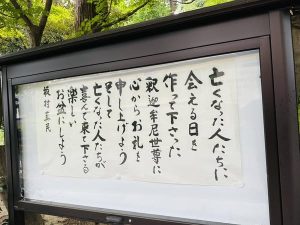 亡くなった人たちに
会える日を
作って下さった
釈迦牟尼世尊に
心からお礼を
申し上げよう
そして
亡くなった人たちが
喜んで来て下さる
楽しい
お盆にしよう
坂村真民